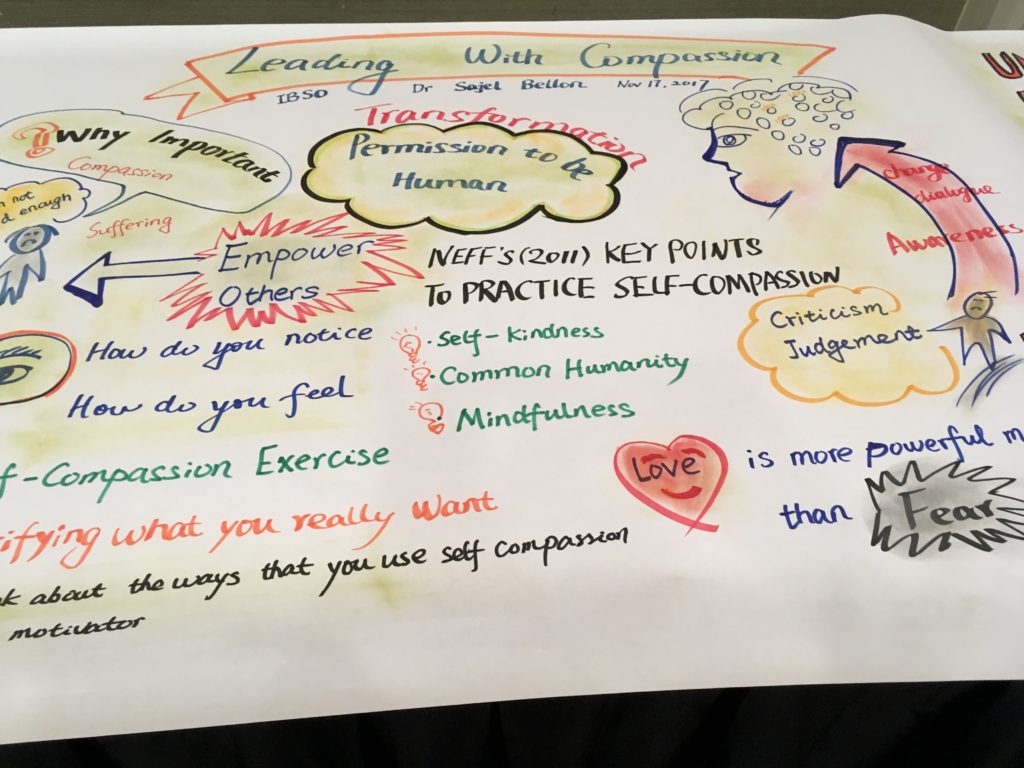 Leading With Compassion
IBSO Dr Sajel Bellon Nov 17, 2017
Transformation
Permission to be
Human
Why Important
Compassion
Suffering
not
enough
Empower
Others
NEFF'S (2011) KEY POINTS
TO PRACTICE SELF-COMPASSION
· Self-Kindness
· Common Humanity
Mindfulness
change
dialogue
Awareness
Criticism
Judgement
How do you notice
How do you feel
f-Compassion Exercise
ifying what you really want
about the ways that you use self compassion
motivator
Love is more powerful m
than Fear